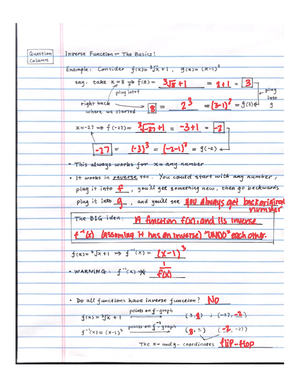 Question Column
Inverse Function — The Basics!
Example: Consider f(x) = ∛x + 1, g(x) = (x-1)³
say, take x = 8 → f(8) = ∛8 + 1 = 2+1 = 3
plug into f
plug into g
right back where we started
8 = 2³ = (3-1)³ = g(3)
x = -27 → f(-27) = ∛-27 + 1 = -3+1 = -2
-27 = (-3)³ = (-2-1)³ = g(-2)
• This always works for x = any number
• It works in reverse too. You could start with any number,
plug it into f, you'll get something new, then go backwards
plug it into g, and you'll see you always get back original number
The BIG idea: A function f(x), and its inverse
f⁻¹(x) (assuming it has an inverse) "UNDO" each other.
f(x) = ∛x + 1 → f⁻¹(x) = (x-1)³
• WARNING: f⁻¹(x) ≠ 1/f(x)
• Do all functions have inverse function? No
f(x) = ∛x + 1 points on f-graph (8, 3), (-27, -2)
f⁻¹(x) = (x-1)³ points on f⁻¹-graph (3, 8), (-2, -27)
The x- and y- coordinates flip-flop